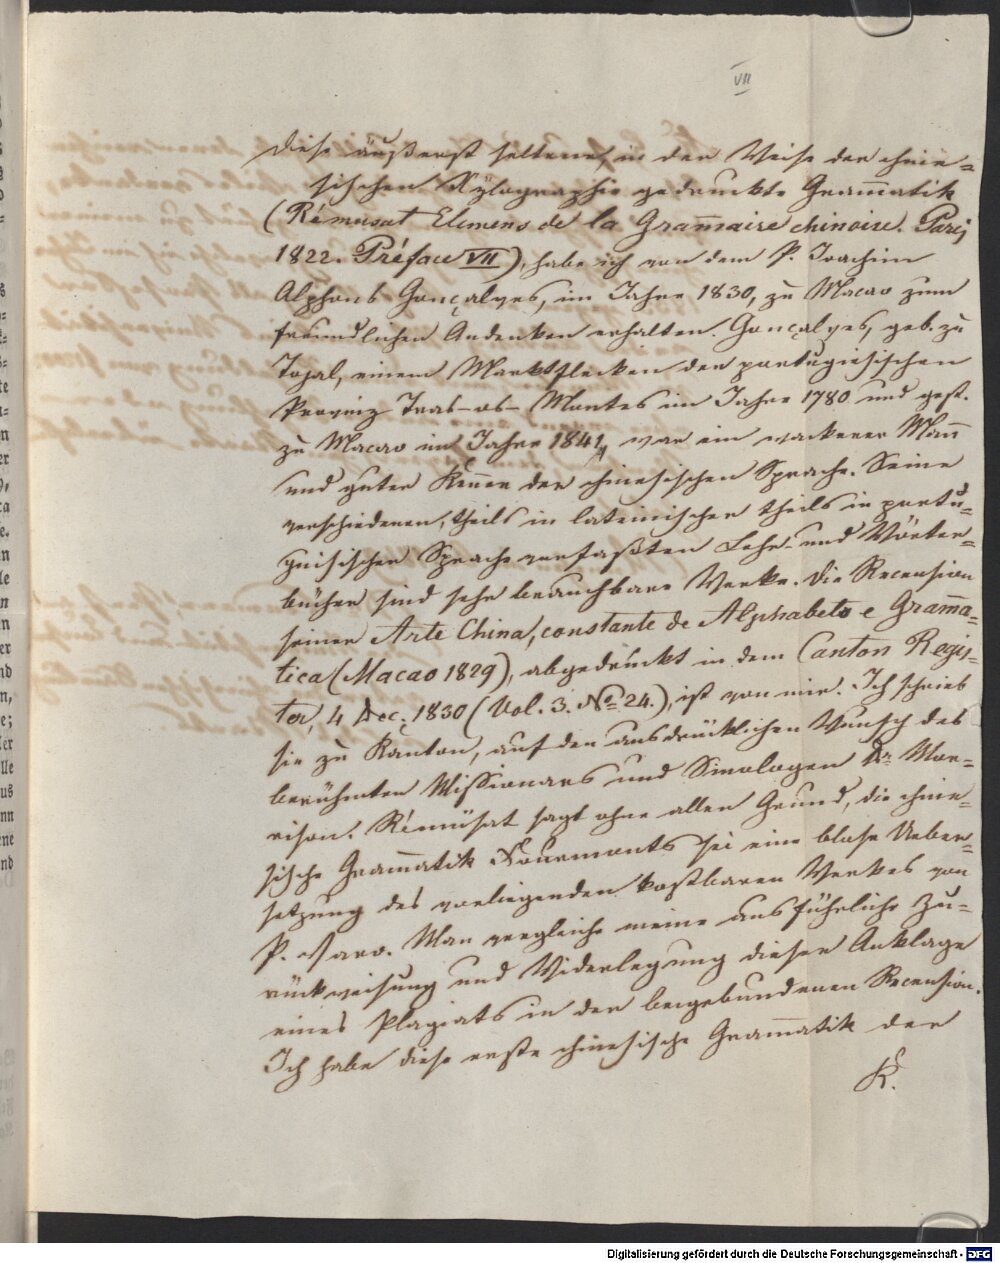 VII
Diese äußerst seltene, in der Weise der chine=
sischen Xylographie gedruckte Gram̅atik
(Rémusat Elemens de la Gram̅aire chinoise. Paris
1822. Préface VII), habe ich von dem P. Joachim
Alphons Gonçalves, im Jahre 1830, zu Macao zum
freundlichen Andenken erhalten. Gonçalves, geb. zu
Tojal, einem Marktflecken der portugiesischen
Provinz Tras-os-Montes im Jahre 1780 und gest.
zu Macao im Jahre 1841, war ein wackerer Man̅
und guter Kenner der chinesischen Sprache. Seine
verschiedenen, theils in lateinischer theils in portu=
giesischer Sprache verfaßten Lehr- und Wörter=
bücher sind sehr brauchbare Werke. Die Recension
seiner Arte China, constante de Alphabeto e Gram̅a=
tica (Macao 1829), abgedruckt in dem Canton Regis=
ter, 4 Dec. 1830 (Vol. 3. No 24.), ist von mir. Ich schrieb
sie zu Kanton, auf den ausdrücklichen Wunsch des
berühmten Missionars und Sinologen Dr. Mor=
rison. Rémusat sagt ohne allen Grund, die chine=
sische Gram̅atik Fourmonts sei eine blose Ueber=
setzung des vorliegenden kostbaren Werkes von
P. Varo. Man vergleiche meine ausführliche Zu=
rückweisung und Widerlegung dieser Anklage
eines Plagiats in der beigebundenen Recension.
Ich habe diese erste chinesische Gram̅atik der
K.
Digitalisierung gefördert durch die Deutsche Forschungsgemeinschaft - DFG